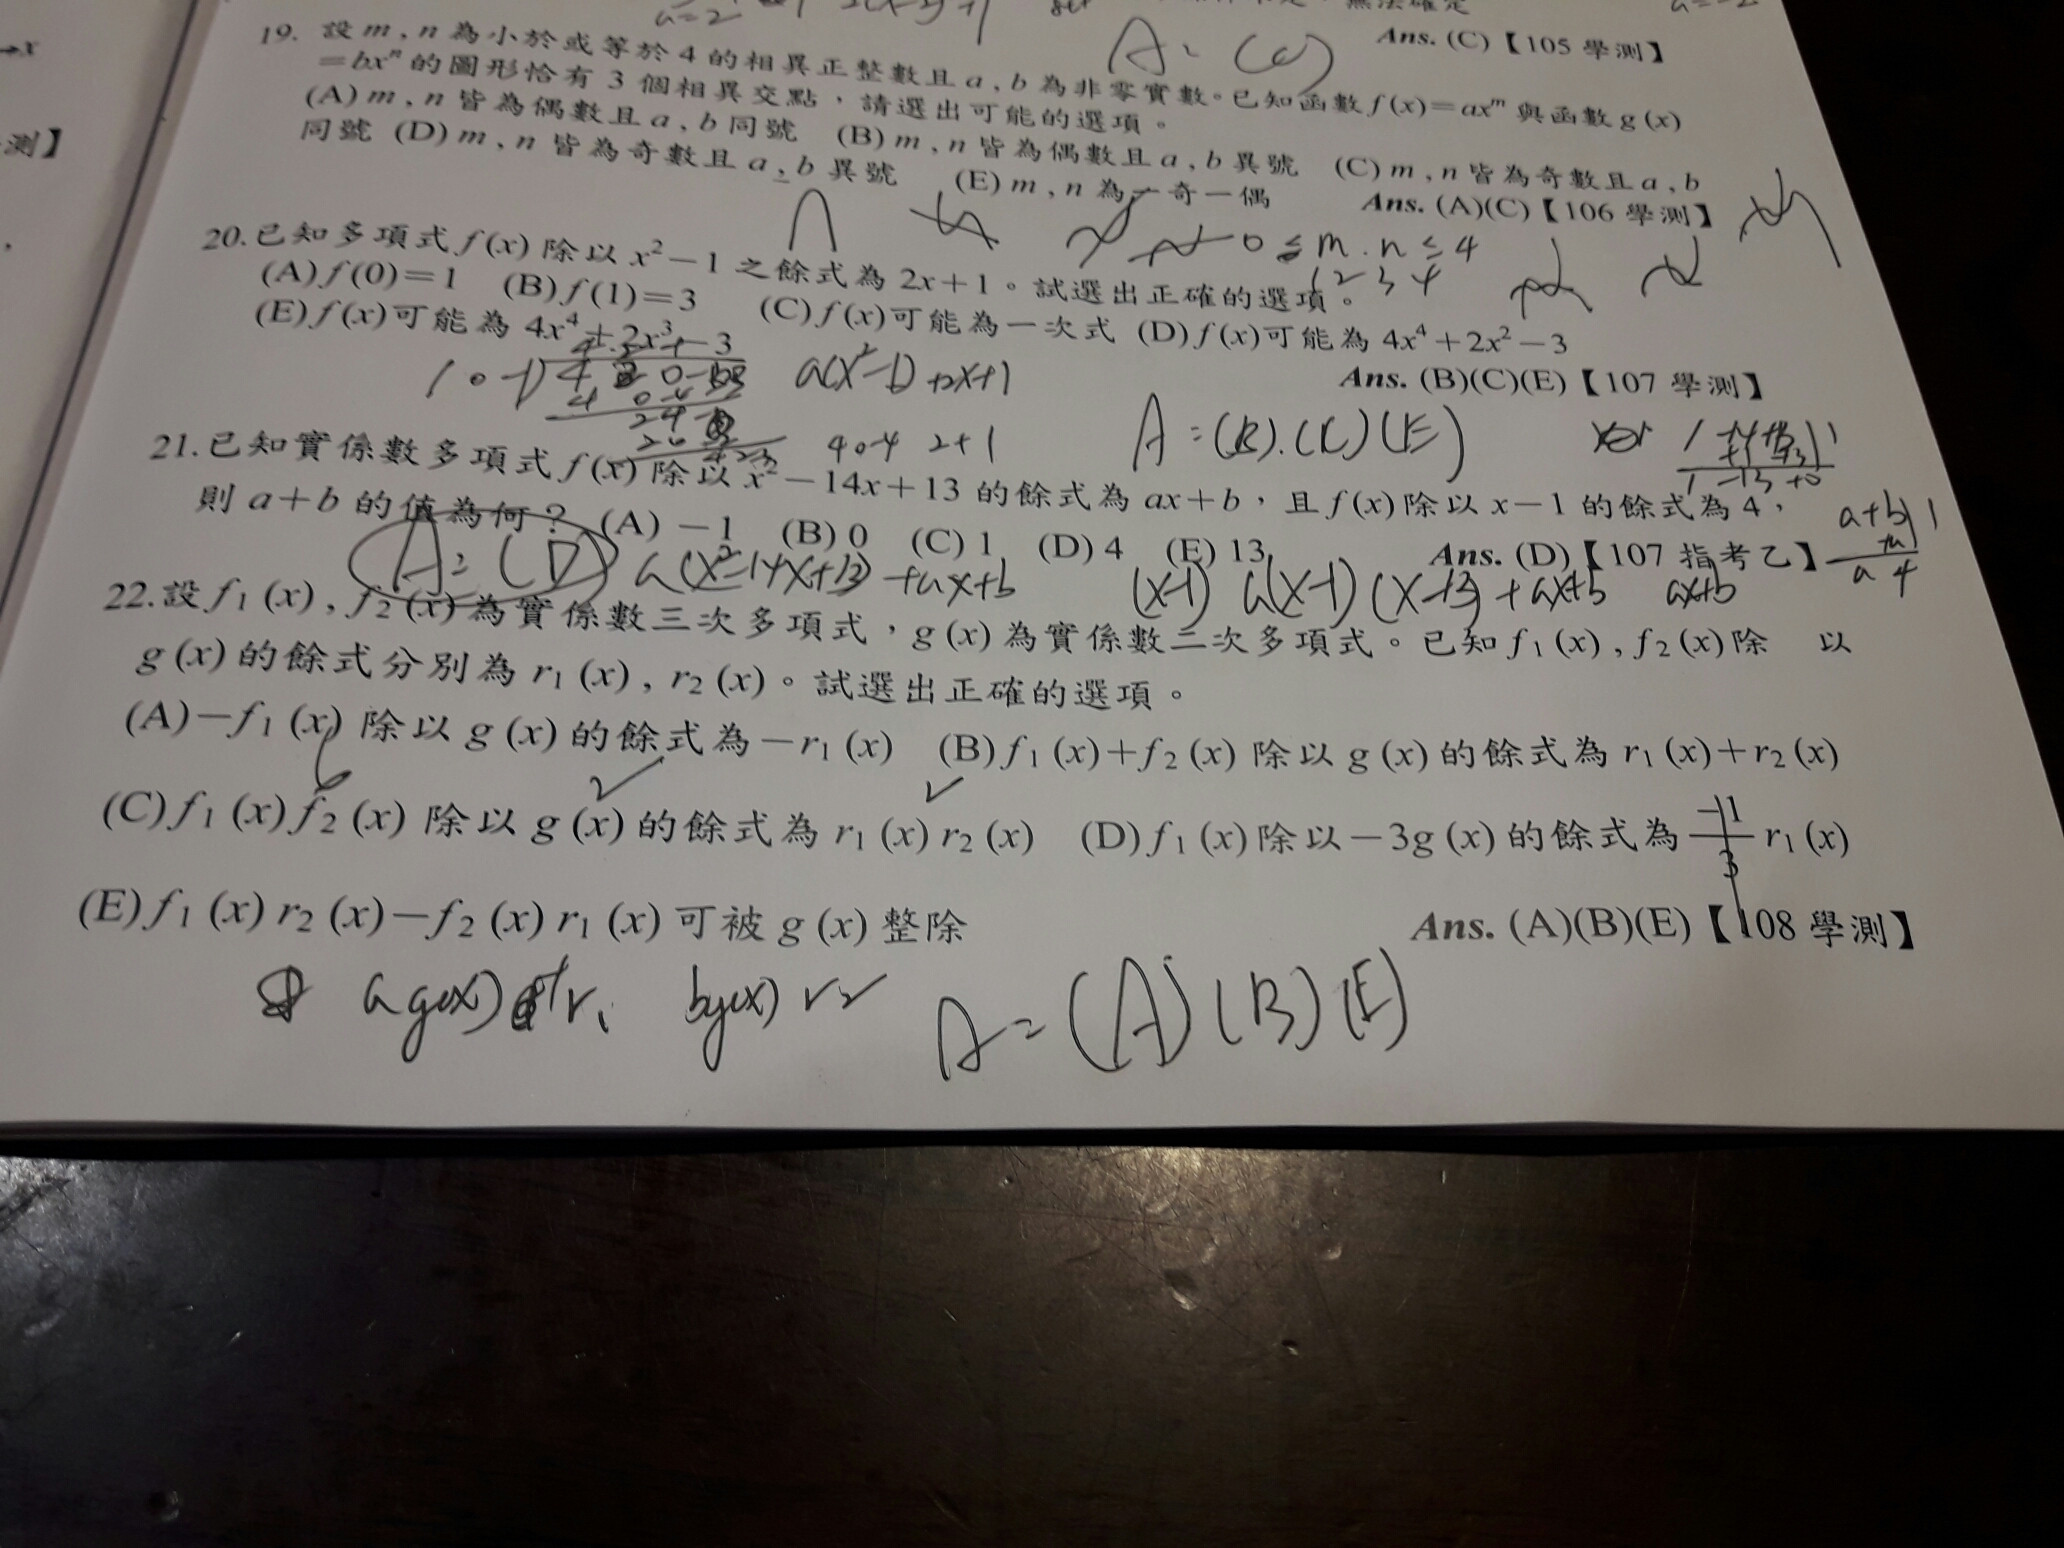 a=2
無法確定
Ans. (C)【105 學測】
A = (C)
19. 設 m , n 為小於或等於 4 的相異正整數且 a , b 為非零實數。已知函數 f (x)＝axᵐ 與函數 g (x)
＝bxⁿ 的圖形恰有 3 個相異交點，請選出可能的選項。
(A) m , n 皆為偶數且 a , b 同號 (B) m , n 皆為偶數且 a , b 異號 (C) m , n 皆為奇數且 a , b
同號 (D) m , n 皆為奇數且 a , b 異號 (E) m , n 為一奇一偶
Ans. (A)(C)【106 學測】
0 ≤ m . n ≤ 4
1 2 3 4
20.已知多項式 f (x) 除以 x²－1 之餘式為 2x＋1。試選出正確的選項。
(A) f (0)＝1 (B) f (1)＝3 (C) f (x)可能為一次式 (D) f (x)可能為 4x⁴＋2x²－3
(E) f (x)可能為 4x⁴＋2x³－3
Ans. (B)(C)(E)【107 學測】
a(x²-1)+2x+1
A = (B).(C)(E)
21.已知實係數多項式 f (x) 除以 x²－14x＋13 的餘式為 ax＋b，且 f (x)除以 x－1 的餘式為 4，
則 a＋b 的值為何？ (A)－1 (B) 0 (C) 1 (D) 4 (E) 13
Ans. (D)【107 指考乙】
A = (D)
a(x²-14x+13)+ax+b
ax+b
22.設 f₁ (x) , f₂ (x) 為實係數三次多項式，g (x) 為實係數二次多項式。已知 f₁ (x) , f₂ (x)除 以
g (x) 的餘式分別為 r₁ (x) , r₂ (x)。試選出正確的選項。
(A)－f₁ (x) 除以 g (x) 的餘式為－r₁ (x) (B) f₁ (x)＋f₂ (x) 除以 g (x) 的餘式為 r₁ (x)＋r₂ (x)
(C) f₁ (x) f₂ (x) 除以 g (x) 的餘式為 r₁ (x) r₂ (x) (D) f₁ (x) 除以－3g (x) 的餘式為 －1/3 r₁ (x)
(E) f₁ (x) r₂ (x)－f₂ (x) r₁ (x) 可被 g (x) 整除
Ans. (A)(B)(E)【108 學測】
a g(x) + r₁ bg(x) r₂
A = (A)(B)(E)